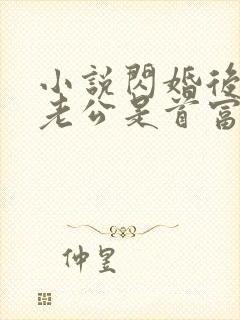 小說閃婚後
老公是首富
仲昱